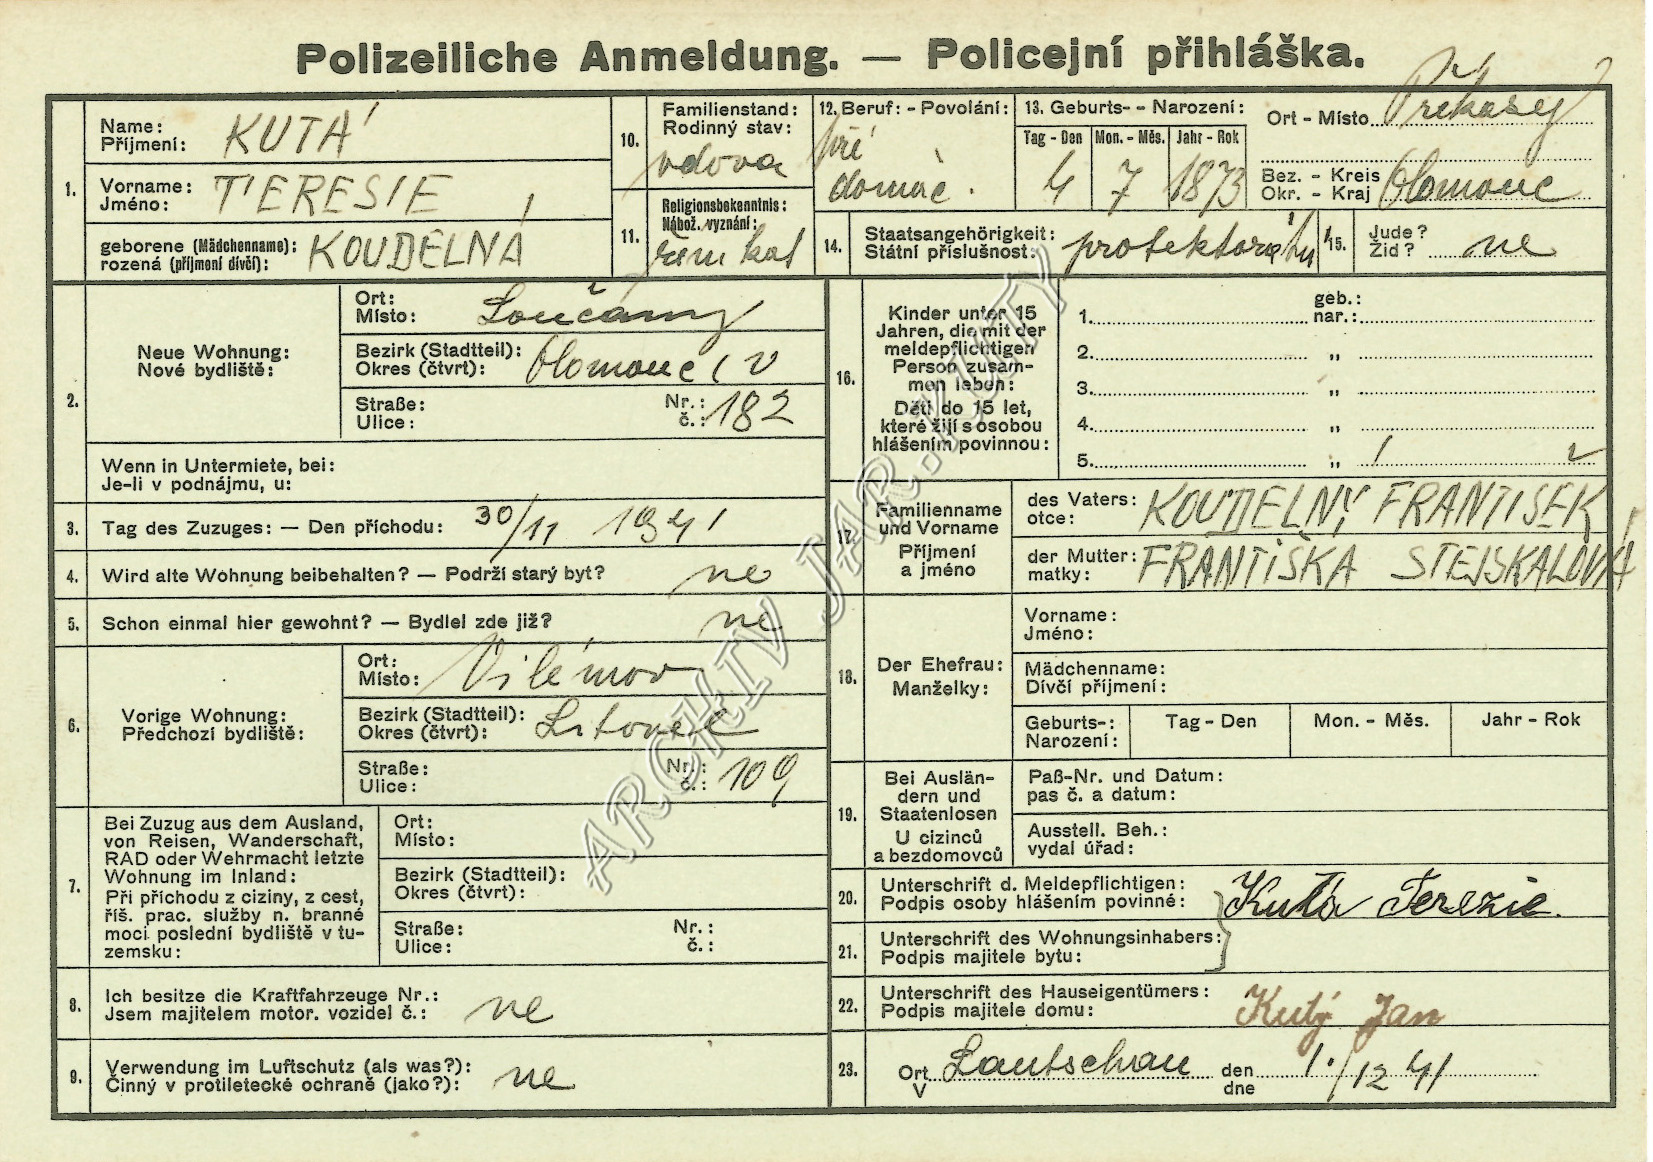 Polizeiliche Anmeldung. — Policejní přihláška.
1.
Name:
Příjmení: KUTÁ
Vorname:
Jméno: TERESIE
geborene (Mädchenname):
rozená (příjmení dívčí): KOUDELNÁ
10. Familienstand:
Rodinný stav:
vdova
11. Religionsbekenntnis:
Nábož. vyznání:
řím kat
12. Beruf: - Povolání:
při
domác.
13. Geburts- - Narození:
Tag - Den Mon. - Měs. Jahr - Rok
4 7 1873
Ort - Místo Příkasy
Bez. - Kreis
Okr. - Kraj Olomouc
14. Staatsangehörigkeit:
Státní příslušnost: protektorátu
15. Jude?
Žid? ne
2. Neue Wohnung:
Nové bydliště:
Ort:
Místo: Loučany
Bezirk (Stadtteil):
Okres (čtvrt): Olomouc v
Straße: Nr.:
Ulice: č.: 182
Wenn in Untermiete, bei:
Je-li v podnájmu, u:
3. Tag des Zuzuges: — Den příchodu: 30/11 1941
4. Wird alte Wohnung beibehalten? — Podrží starý byt? ne
5. Schon einmal hier gewohnt? — Bydlel zde již? ne
6. Vorige Wohnung:
Předchozí bydliště:
Ort:
Místo: Vilémov
Bezirk (Stadtteil):
Okres (čtvrt): Litovel
Straße: Nr.:
Ulice: č.: 109
7. Bei Zuzug aus dem Ausland,
von Reisen, Wanderschaft,
RAD oder Wehrmacht letzte
Wohnung im Inland:
Při příchodu z ciziny, z cest,
říš. prac. služby n. branné
moci poslední bydliště v tu-
zemsku:
Ort:
Místo:
Bezirk (Stadtteil):
Okres (čtvrt):
Straße: Nr.:
Ulice: č.:
8. Ich besitze die Kraftfahrzeuge Nr.:
Jsem majitelem motor. vozidel č.: ne
9. Verwendung im Luftschutz (als was?):
Činný v protiletecké ochraně (jako?): ne
16. Kinder unter 15
Jahren, die mit der
meldepflichtigen
Person zusam-
men leben:
Děti do 15 let,
které žijí s osobou
hlášením povinnou:
1. geb.:
nar.:
2. „
3. „
4. „
5. „
17. Familienname
und Vorname
Příjmení
a jméno
des Vaters:
otce: KOUDELNÝ FRANTISEK
der Mutter:
matky: FRANTIŠKA STEJSKALOVÁ
18. Der Ehefrau:
Manželky:
Vorname:
Jméno:
Mädchenname:
Dívčí příjmení:
Geburts-:
Narození:
Tag - Den Mon. - Měs. Jahr - Rok
19. Bei Auslän-
dern und
Staatenlosen
U cizinců
a bezdomovců
Paß-Nr. und Datum:
pas č. a datum:
Ausstell. Beh.:
vydal úřad:
20. Unterschrift d. Meldepflichtigen:
Podpis osoby hlášením povinné: Kutá Terezie.
21. Unterschrift des Wohnungsinhabers:
Podpis majitele bytu:
22. Unterschrift des Hauseigentümers:
Podpis majitele domu: Kutý Jan
23. Ort Lautschan den 1./12 41
V dne
ARCHIV JAR.KUTÝ